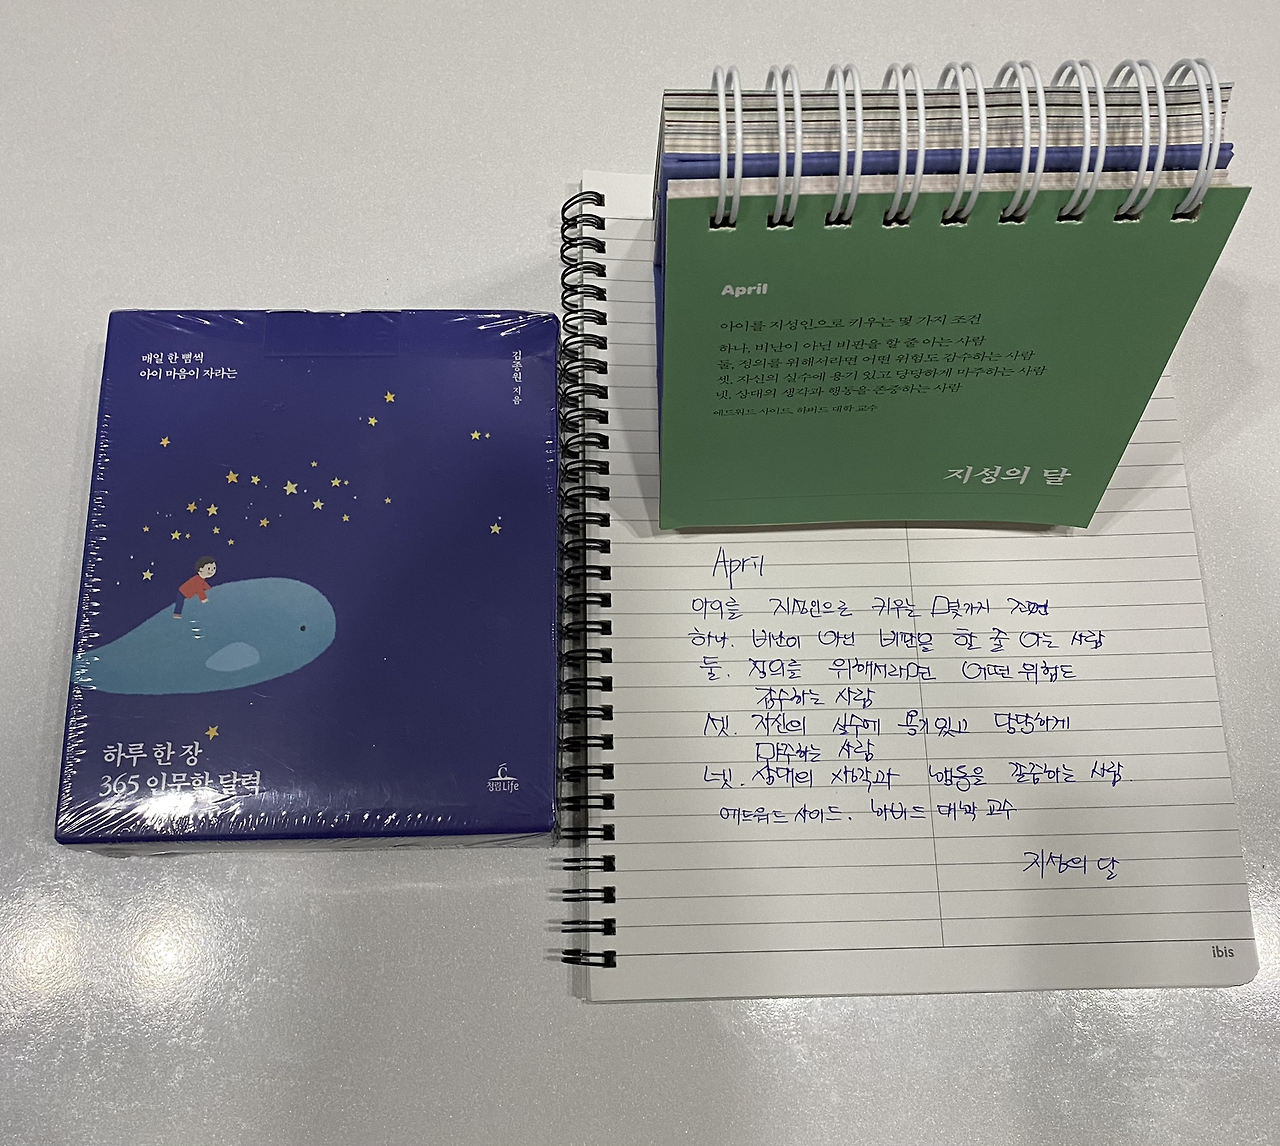 매일 한 뼘씩
아이 마음이 자라는
김종원 지음
하루 한 장
365 인문학 달력
청림Life
April
아이를 지성인으로 키우는 몇 가지 조건
하나, 비난이 아닌 비판을 할 줄 아는 사람
둘, 정의를 위해서라면 어떤 위험도 감수하는 사람
셋. 자신의 실수에 용기 있고 당당하게 마주하는 사람
넷, 상대의 생각과 행동을 존중하는 사람
에드워드 사이드, 하버드 대학 교수
지성의 달
April
아이를 지성인으로 키우는 몇가지 조건
하나. 비난이 아닌 비판을 할 줄 아는 사람
둘. 정의를 위해서라면 어떤 위험도
감수하는 사람
셋. 자신의 실수에 용기 있고 당당하게
마주하는 사람
넷. 상대의 생각과 행동을 존중하는 사람.
에드워드 사이드. 하버드 대학 교수
지성의 달
ibis